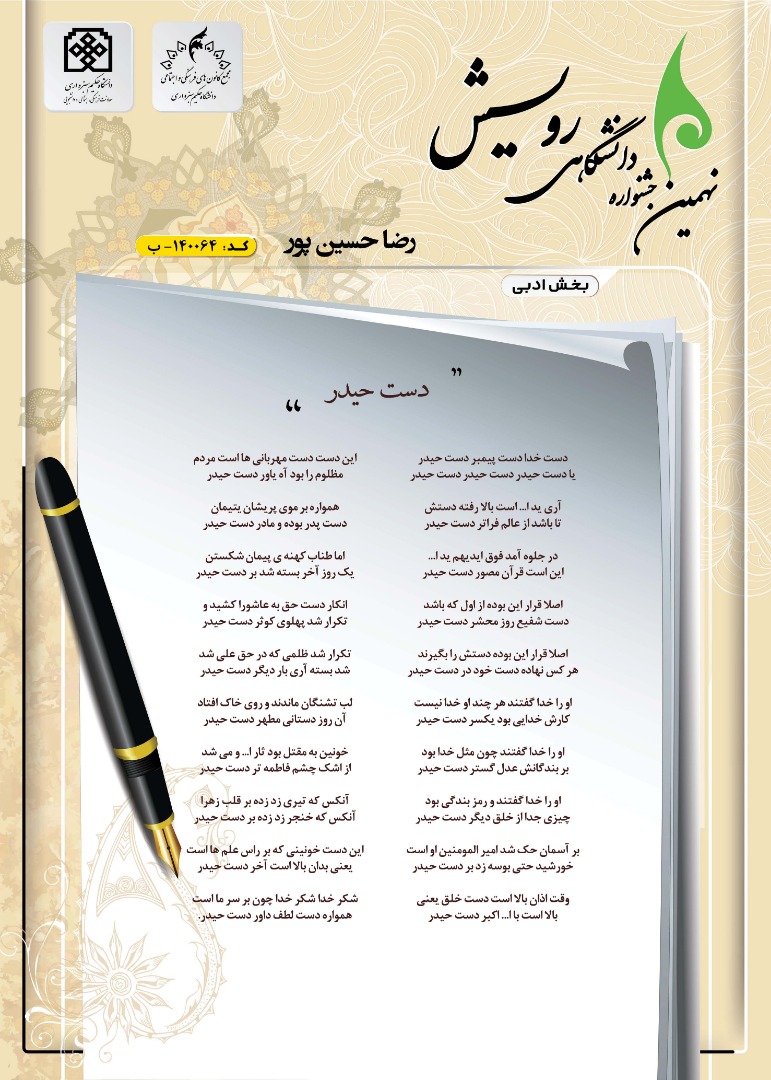 دانشگاه حکیم سبزواری
معاونت فرهنگی، اجتماعی و دانشجویی
مجمع کانون های فرهنگی و اجتماعی
دانشگاه حکیم سبزواری
نهمین جشنواره دانشگاهی رویش
رضا حسین پور
کد: ۱۴۰۰۶۴- ب
بخش ادبی
" دست حیدر "
دست خدا دست پیمبر دست حیدر
یا دست حیدر دست حیدر دست حیدر
آری ید ا... است بالا رفته دستش
تا باشد از عالم فراتر دست حیدر
در جلوه آمد فوق ایدیهم ید ا...
این است قرآن مصور دست حیدر
اصلا قرار این بوده از اول که باشد
دست شفیع روز محشر دست حیدر
اصلا قرار این بوده دستش را بگیرند
هر کس نهاده دست خود در دست حیدر
او را خدا گفتند هر چند او خدا نیست
کارش خدایی بود یکسر دست حیدر
او را خدا گفتند چون مثل خدا بود
بر بندگانش عدل گستر دست حیدر
او را خدا گفتند و رمز بندگی بود
چیزی جدا از خلق دیگر دست حیدر
بر آسمان حک شد امیر المومنین او است
خورشید حتی بوسه زد بر دست حیدر
وقت اذان بالا است دست خلق یعنی
بالا است با ا... اکبر دست حیدر
این دست دست مهربانی ها است مردم
مظلوم را بود آه یاور دست حیدر
همواره بر موی پریشان یتیمان
دست پدر بوده و مادر دست حیدر
اما طناب کهنه ی پیمان شکستن
یک روز آخر بسته شد بر دست حیدر
انکار دست حق به عاشورا کشید و
تکرار شد پهلوی کوثر دست حیدر
تکرار شد ظلمی که در حق علی شد
شد بسته آری بار دیگر دست حیدر
لب تشنگان ماندند و روی خاک افتاد
آن روز دستانی مطهر دست حیدر
خونین به مقتل بود ثار ا... و می شد
از اشک چشم فاطمه تر دست حیدر
آنکس که تیری زد زده بر قلب زهرا
آنکس که خنجر زد زده بر دست حیدر
این دست خونینی که بر راس علم ها است
یعنی بدان بالا است آخر دست حیدر
شکر خدا شکر خدا چون بر سر ما است
همواره دست لطف داور دست حیدر.